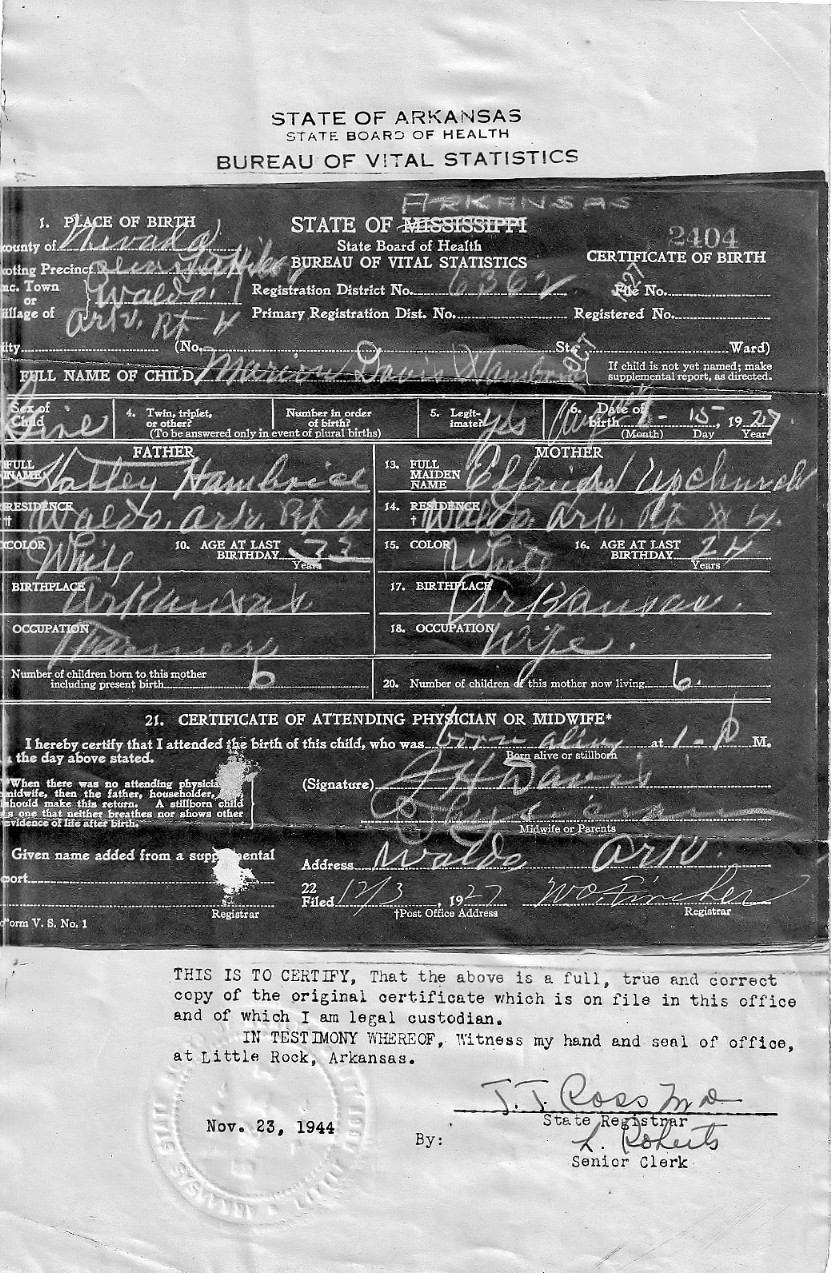 STATE OF ARKANSAS
STATE BOARD OF HEALTH
BUREAU OF VITAL STATISTICS
ARKANSAS
1. PLACE OF BIRTH STATE OF MISSISSIPPI
ounty of Nevada State Board of Health 2404
oting Precinct BUREAU OF VITAL STATISTICS CERTIFICATE OF BIRTH
nc. Town Waldo Registration District No. 6362 File No.
or
illage of Ark. Rt 4 Primary Registration Dist. No. Registered No.
ity (No. St. Ward)
FULL NAME OF CHILD Marion Davis If child is not yet named; make supplemental report, as directed.
Sex of Child 4. Twin, triplet, or other? Number in order of birth? 5. Legitimate? yes 6. Date of birth August 15, 1927
(To be answered only in event of plural births) (Month) Day Year
FATHER MOTHER
FULL NAME 13. FULL MAIDEN NAME Elfrieda Upchurch
RESIDENCE Waldo, Ark. Rt 4 14. RESIDENCE Waldo, Ark. Rt 4.
COLOR White 10. AGE AT LAST BIRTHDAY 33 Years 15. COLOR White 16. AGE AT LAST BIRTHDAY 24 Years
BIRTHPLACE Arkansas 17. BIRTHPLACE Arkansas.
OCCUPATION Farmer 18. OCCUPATION Wife.
Number of children born to this mother including present birth 6 20. Number of children of this mother now living 6.
21. CERTIFICATE OF ATTENDING PHYSICIAN OR MIDWIFE*
I hereby certify that I attended the birth of this child, who was born alive at 1-P M.
the day above stated. Born alive or stillborn
*When there was no attending physician
midwife, then the father, householder, (Signature) J H Davis
should make this return. A stillborn child
is one that neither breathes nor shows other Physician
evidence of life after birth. Midwife or Parents
Given name added from a supplemental Address Waldo Ark.
port
22 Filed 12/3, 1927
Registrar †Post Office Address Registrar
orm V. S. No. 1
THIS IS TO CERTIFY, That the above is a full, true and correct
copy of the original certificate which is on file in this office
and of which I am legal custodian.
IN TESTIMONY WHEREOF, Witness my hand and seal of office,
at Little Rock, Arkansas.
J. T. Ross MD
Nov. 23, 1944 State Registrar
By: L. Roberts
Senior Clerk